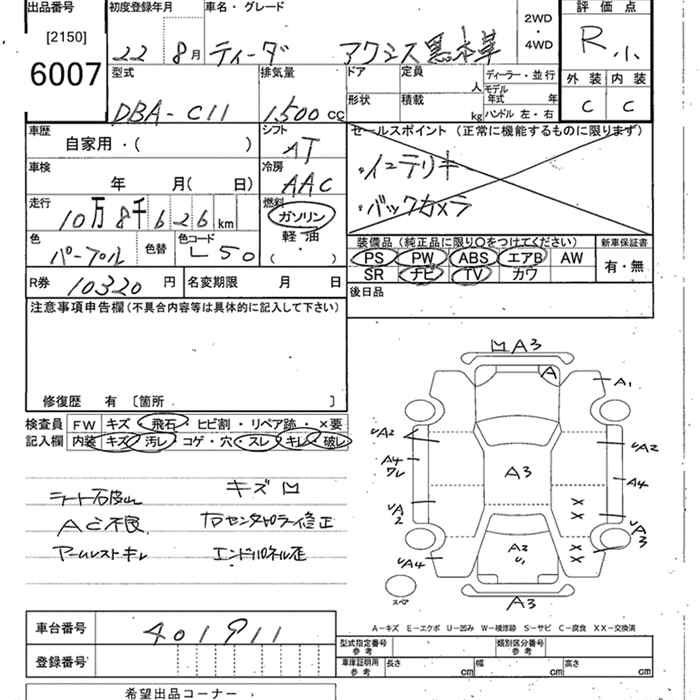 出品番号 初度登録年月 車名・グレード 評価点
[2150] 2WD
6007 22 8月 ティーダ アクシス黒本革 ・4WD R小
型式 排気量 ドア 定員 人 ディーラー・並行 外装 内装
DBA-C11 1,500cc 形状 積載 kg モデル年式 年 ハンドル 左・右 C C
車歴 シフト セールスポイント (正常に機能するものに限ります)
自家用・( ) AT
・インテリキ
車検 冷房
年 月( 日) AAC
・バックカメラ
走行 燃料
10万8千626km ガソリン
色 色替 色コード 軽油
パープル L50 ( ・ )
装備品 (純正品に限り○をつけてください) 新車保証書
PS PW ABS エアB AW 有・無
SR ナビ TV カワ
R券 10320円 名変期限 月 日 後日品
注意事項申告欄(不具合内容等は具体的に記入して下さい)
修復歴 有 〔箇所 〕
検査員 FW キズ・飛石・ヒビ割・リペア跡・×要
記入欄 内装 キズ・汚レ・コゲ・穴・スレ・キレ・破レ
キズM
AC不良
アームレストキレ エンドパネル歪
MA3
A
A1
UA2 UA2
A4 A3 A4
UA2
UA3
A2
U1
UA4
スペア
A3
A-キズ E-エクボ U-凹み W-補修跡 S-サビ C-腐食 XX-交換済
車台番号 401911
登録番号
型式指定番号 参考 類別区分番号 参考
車庫証明用 参考 長さ cm 幅 cm 高さ cm
希望出品コーナー